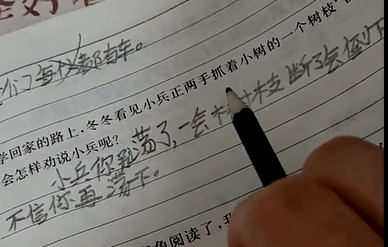 们门每仪都有车。
学回家的路上，冬冬看见小兵正两手抓着小树的一个树枝
会怎样劝说小兵呢？
小兵你别荡了，一会树枝断了会倒
不信你再荡下。
角阅读了，